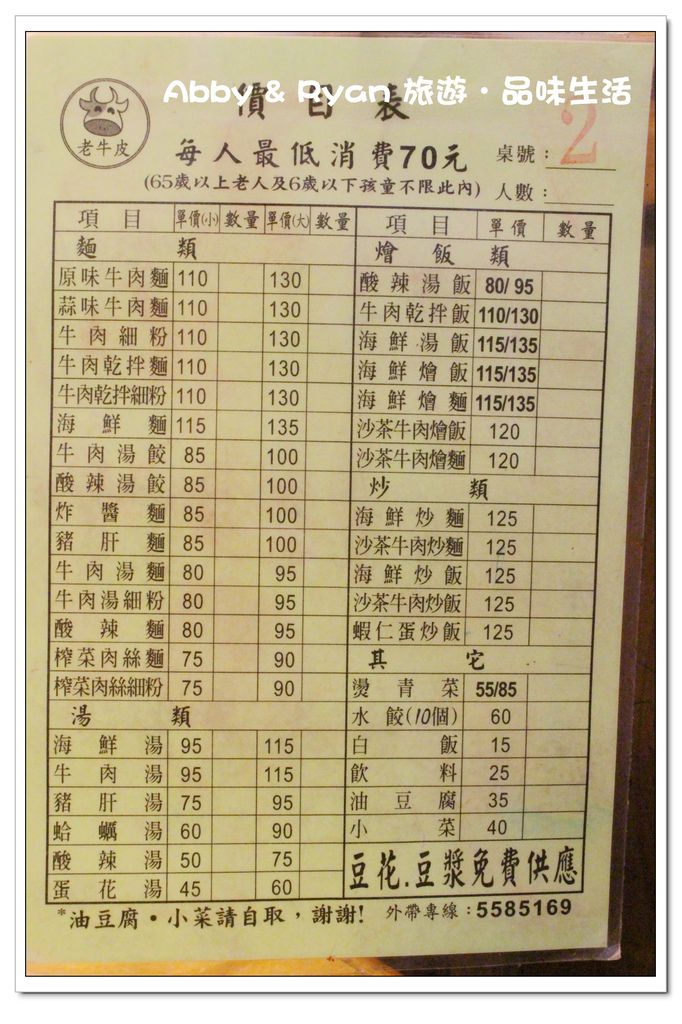 Abby & Ryan 旅遊·品味生活
價目表
老牛皮
每人最低消費70元
桌號：2
(65歲以上老人及6歲以下孩童不限此內)
人數：
項目 單價(小) 數量 單價(大) 數量
麵類
原味牛肉麵 110 130
蒜味牛肉麵 110 130
牛肉細粉 110 130
牛肉乾拌麵 110 130
牛肉乾拌細粉 110 130
海鮮麵 115 135
牛肉湯餃 85 100
酸辣湯餃 85 100
炸醬麵 85 100
豬肝麵 85 100
牛肉湯麵 80 95
牛肉湯細粉 80 95
酸辣麵 80 95
榨菜肉絲麵 75 90
榨菜肉絲細粉 75 90
湯類
海鮮湯 95 115
牛肉湯 95 115
豬肝湯 75 95
蛤蠣湯 60 90
酸辣湯 50 75
蛋花湯 45 60
項目 單價 數量
燴飯類
酸辣湯飯 80/95
牛肉乾拌飯 110/130
海鮮湯飯 115/135
海鮮燴飯 115/135
海鮮燴麵 115/135
沙茶牛肉燴飯 120
沙茶牛肉燴麵 120
炒類
海鮮炒麵 125
沙茶牛肉炒麵 125
海鮮炒飯 125
沙茶牛肉炒飯 125
蝦仁蛋炒飯 125
其它
燙青菜 55/85
水餃(10個) 60
白飯 15
飲料 25
油豆腐 35
小菜 40
豆花.豆漿免費供應
*油豆腐·小菜請自取，謝謝!
外帶專線：5585169